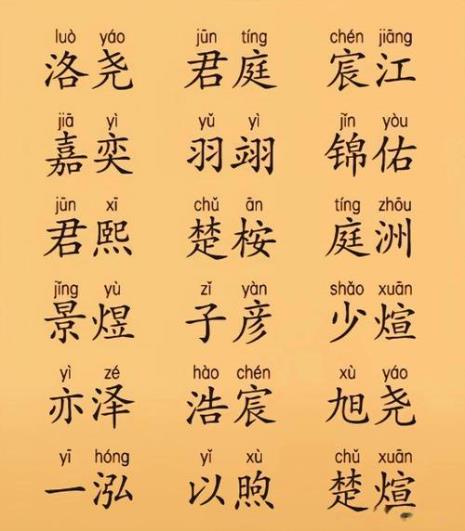 luò yáo jūn tíng chén jiāng
洛尧 君庭 宸江
jiā yì yǔ yì jǐn yòu
嘉奕 羽翊 锦佑
jūn xī chǔ ān tíng zhōu
君熙 楚桉 庭洲
jǐng yù zǐ yàn shǎo xuān
景煜 子彦 少煊
yì zé hào chén xù yáo
亦泽 浩宸 旭尧
yī hóng yǐ xù chǔ xuān
一泓 以煦 楚煊